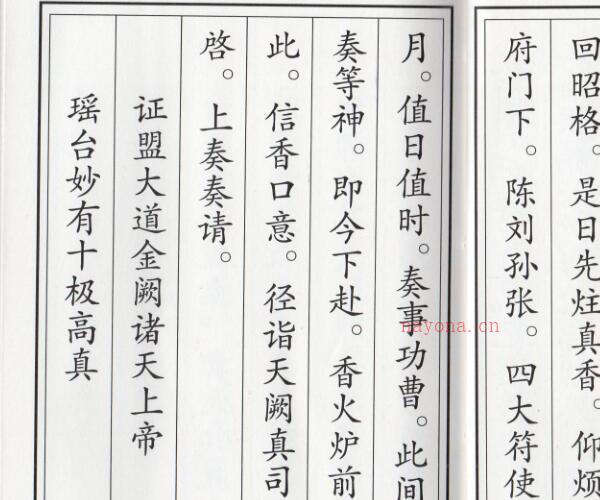 回昭格。是日先炷真香。仰烦
府门下。陈刘孙张。四大符使
月。值日值时。奏事功曹。此间
奏等神。即今下赴。香火炉前
此。信香口意。径诣天阙真司
启。上奏奏请。
证盟大道金阙诸天上帝
瑶台妙有十极高真
nayona.cn